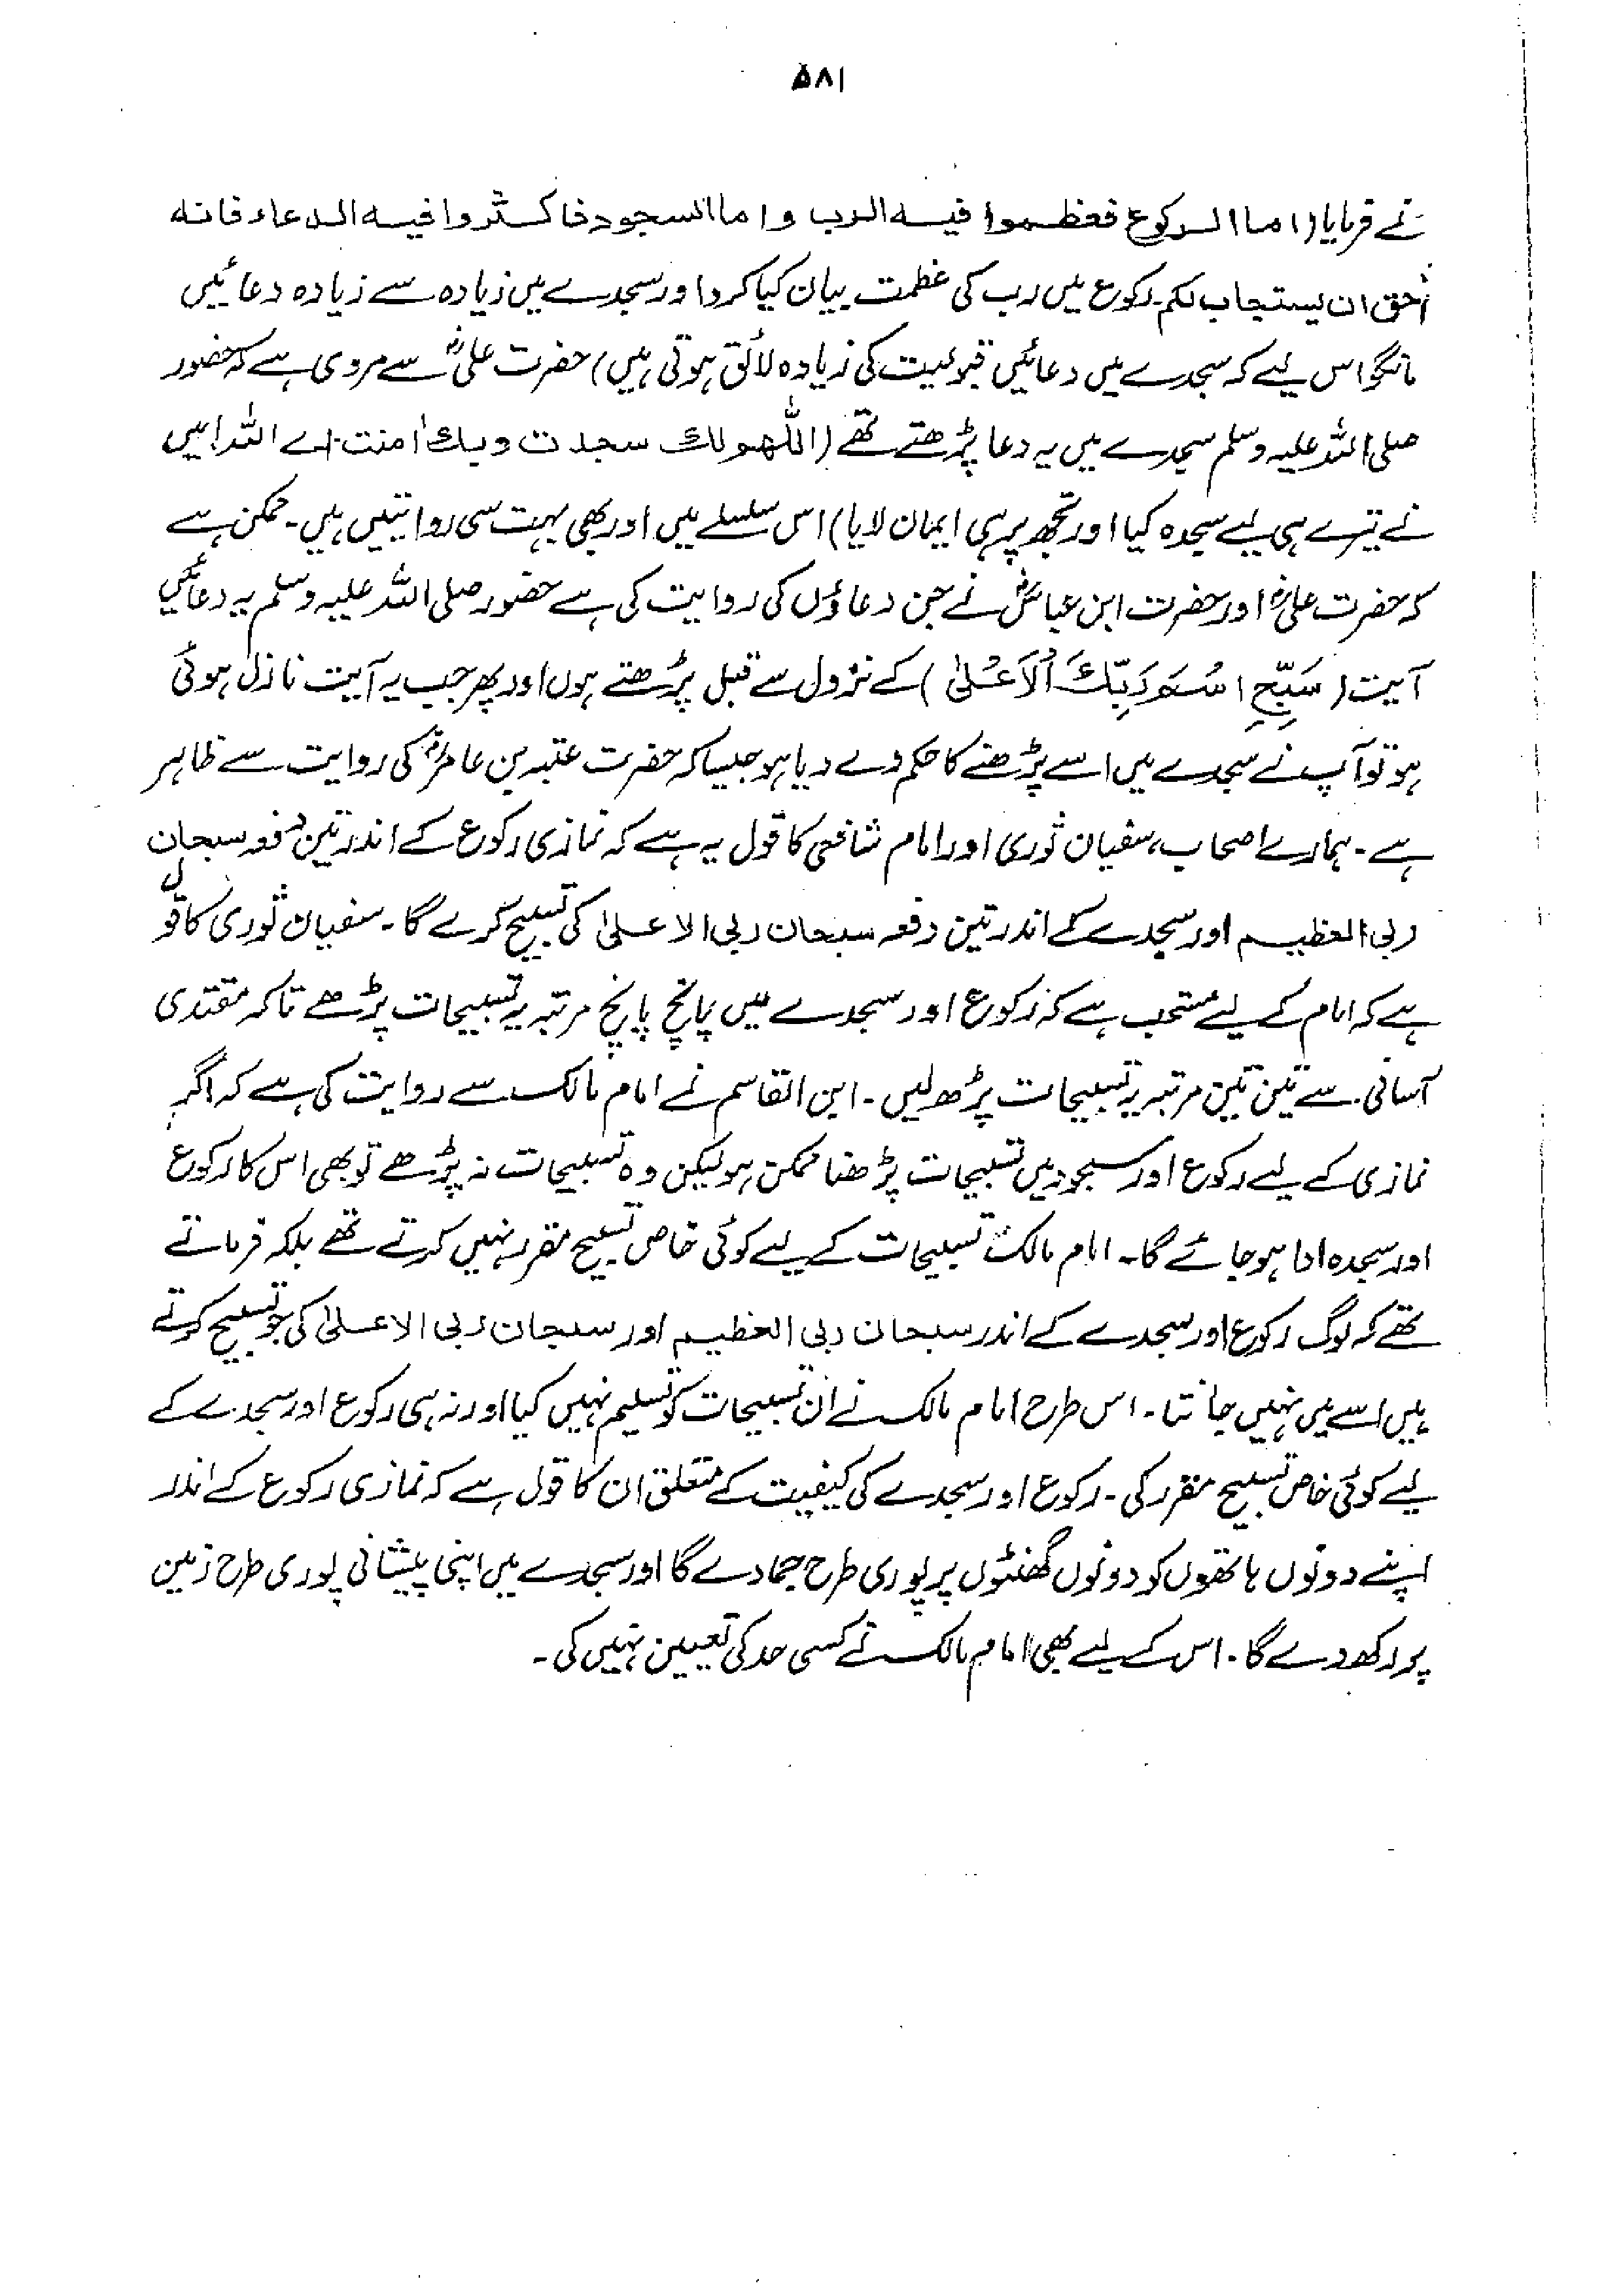 ۵۸۱
نے فرمایا (اما الرکوع فعظموا فیه الرب و اما السجود فاکثروا فیه الدعاء فانه
أحق ان یستجاب لکم۔ رکوع میں رب کی عظمت بیان کیا کرو اور سجدے میں زیادہ سے زیادہ دعائیں
مانگو اس لیے کہ سجدے میں دعائیں قبولیت کی زیادہ لائق ہوتی ہیں) حضرت علیؓ سے مروی ہے کہ حضور
صلی اللہ علیہ وسلم سجدے میں یہ دعا پڑھتے تھے (اللّٰھم لک سجدت وبک اٰمنت۔ اے اللہ! میں
نے تیرے ہی لیے سجدہ کیا اور تجھ پر ہی ایمان لایا) اس سلسلے میں اور بھی بہت سی روایتیں ہیں۔ ممکن ہے
کہ حضرت علیؓ اور حضرت ابن عباسؓ نے جن دعاؤں کی روایت کی ہے حضور صلی اللہ علیہ وسلم یہ دعائیں
آیت (سَبِّحِ اسْمَ رَبِّكَ الْاَعْلٰی) کے نزول سے قبل پڑھتے ہوں اور پھر جب یہ آیت نازل ہوئی
ہو تو آپ نے سجدے میں اسے پڑھنے کا حکم دے دیا ہو جیسا کہ حضرت عقبہ بن عامرؓ کی روایت سے ظاہر
ہے۔ ہمارے اصحاب، سفیان ثوری اور امام شافعی کا قول یہ ہے کہ نمازی رکوع کے اندر تین دفعہ سبحان
ربی العظیم اور سجدے کے اندر تین دفعہ سبحان ربی الاعلیٰ کی تسبیح کرے گا۔ سفیان ثوری کا قول
ہے کہ امام کے لیے مستحب ہے کہ رکوع اور سجدے میں پانچ پانچ مرتبہ یہ تسبیحات پڑھے تاکہ مقتدی
آسانی سے تین تین مرتبہ یہ تسبیحات پڑھ لیں۔ ابن القاسم نے امام مالک سے روایت کی ہے کہ اگر
نمازی کے لیے رکوع اور سجود میں تسبیحات پڑھنا ممکن ہو لیکن وہ تسبیحات نہ پڑھے تو بھی اس کا رکوع
اور سجدہ ادا ہو جائے گا۔ امام مالکؒ تسبیحات کے لیے کوئی خاص تسبیح مقرر نہیں کرتے تھے بلکہ فرماتے
تھے کہ لوگ رکوع اور سجدے کے اندر سبحان ربی العظیم اور سبحان ربی الاعلیٰ کی جو تسبیح کرتے
ہیں اسے میں نہیں جانتا۔ اس طرح امام مالک نے ان تسبیحات کو تسلیم نہیں کیا اور نہ ہی رکوع اور سجدے کے
لیے کوئی خاص تسبیح مقرر کی۔ رکوع اور سجدے کی کیفیت کے متعلق ان کا قول ہے کہ نمازی رکوع کے اندر
اپنے دونوں ہاتھوں کو دونوں گھٹنوں پر پوری طرح جما دے گا اور سجدے میں اپنی پیشانی پوری طرح زمین
پر رکھ دے گا۔ اس کے لیے بھی امام مالک نے کسی حد کی تعیین نہیں کی۔